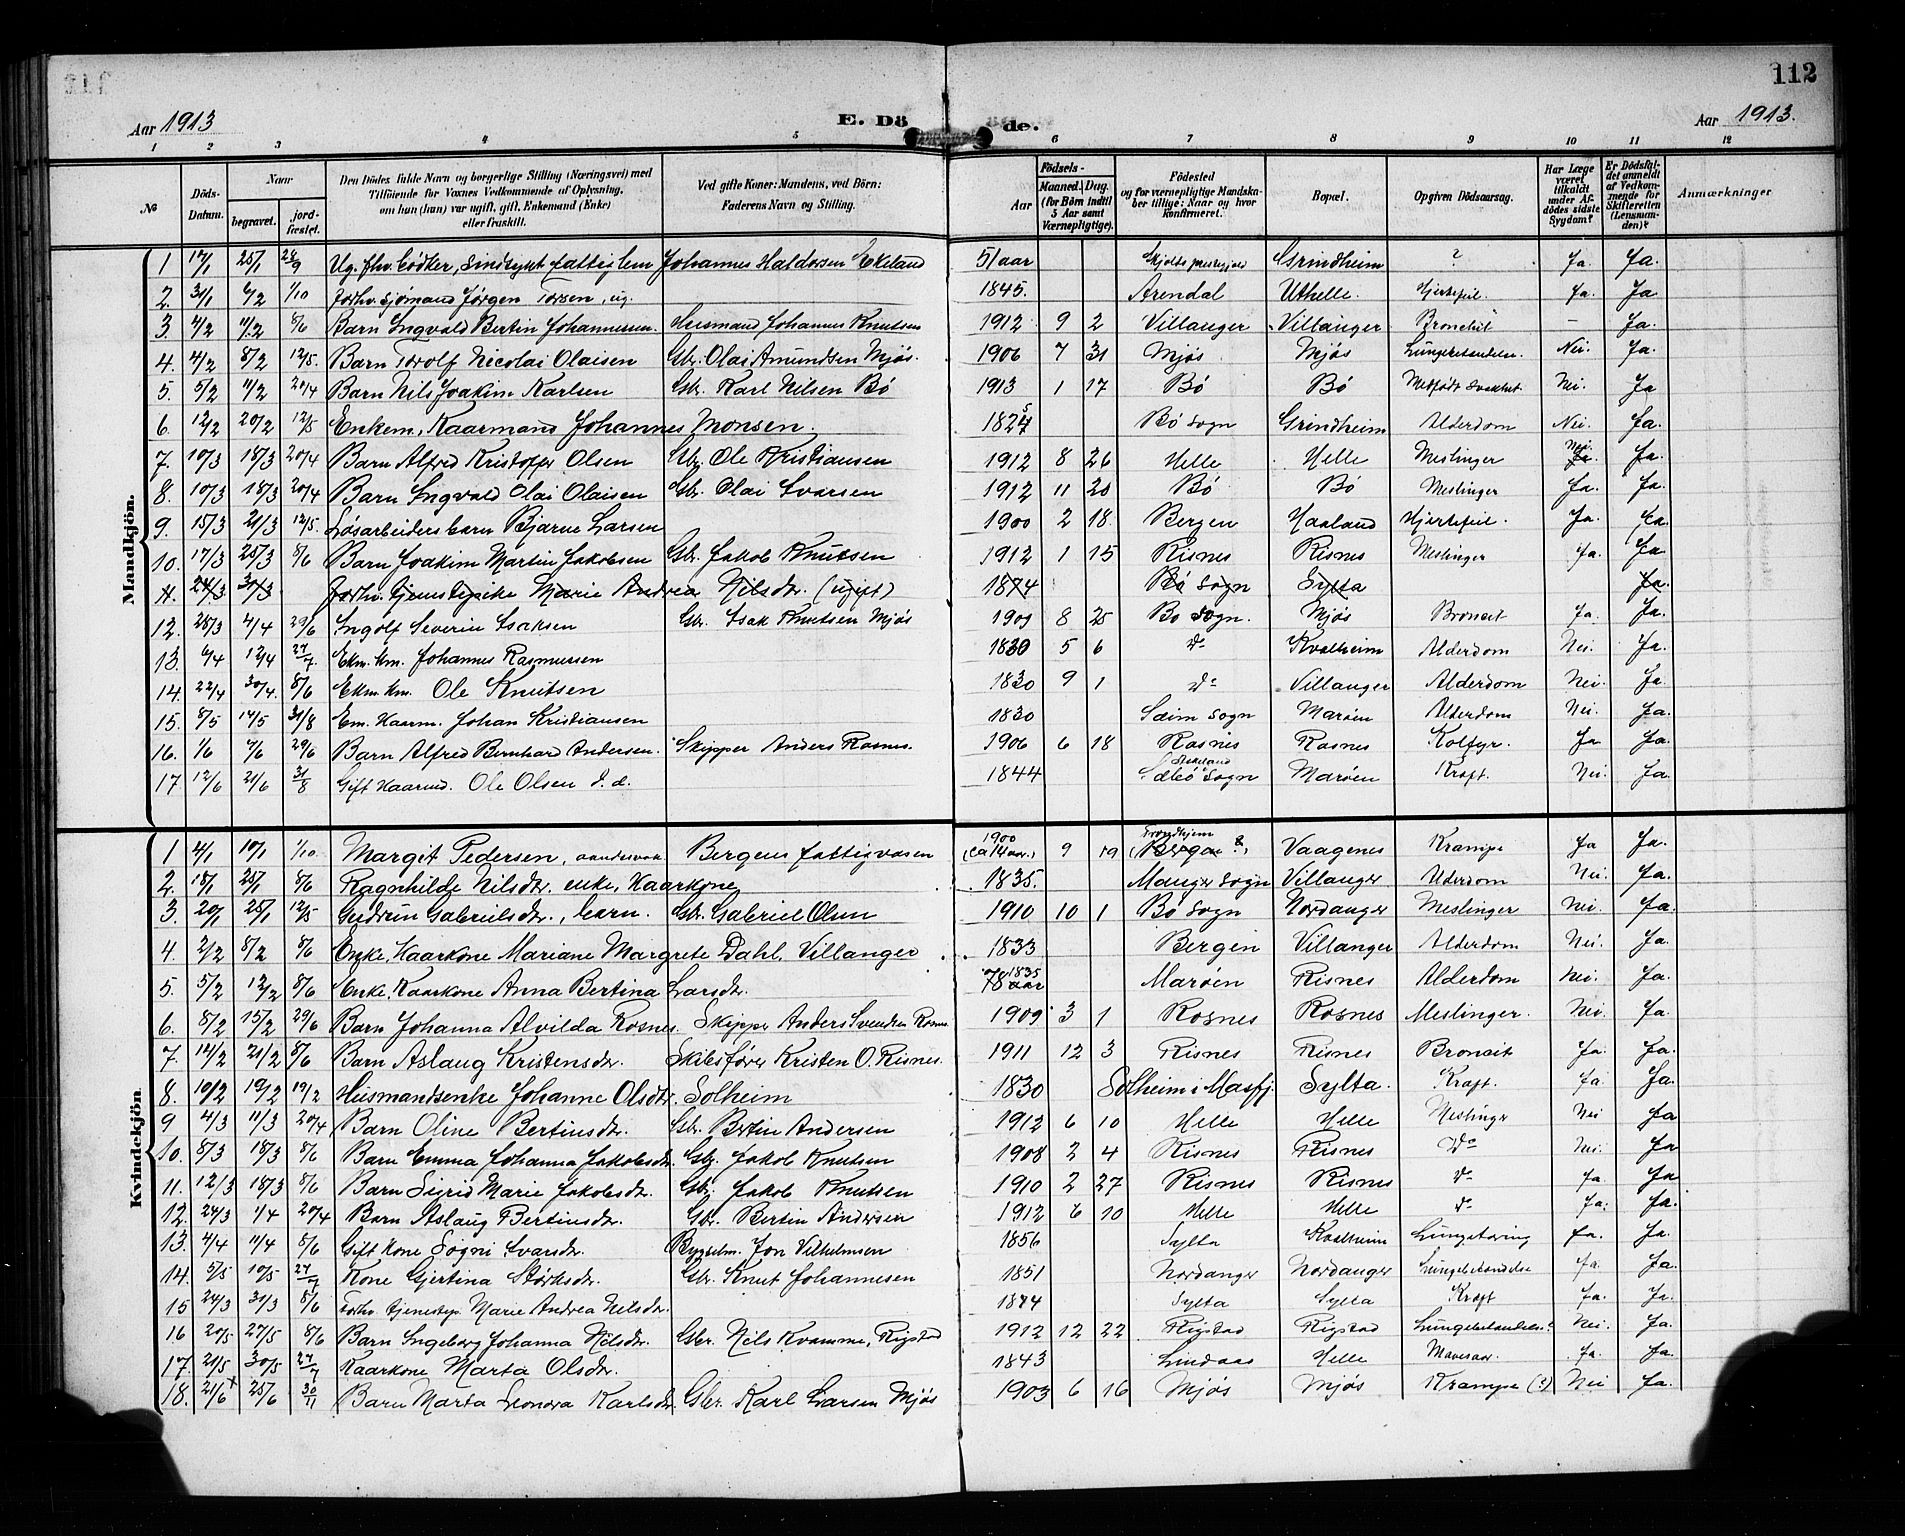 112
Aar 1913
E. Dö
de.
Aar 1913.
1 2 3 4 5 6 7 8 9 10 11 12
№
Döds-Datum.
Naar
begravet.
jord-fæstet.
Den Dödes fulde Navn og borgerlige Stilling (Næringsvei) med
Tilföiende for Voxnes Vedkommende af Oplysning,
om hun (han) var ugift, gift, Enkemand (Enke)
eller fraskilt.
Ved gifte Koner: Mandens, ved Börn:
Faderens Navn og Stilling.
Födsels-
Aar
Maaned. Dag.
(for Börn indtil
5 Aar samt
Værnepligtige).
Födested
og for værnepligtige Mandska-
ber tillige: Naar og hvor
konfirmeret.
Bopæl.
Opgiven Dödsaarsag.
Har Læge
været
tilkaldt
under Af-
dödes sidste
Sygdom?
Er Dödsfal-
det anmeldt
af Vedkom-
mende for
Skifteretten
(Lensman-
den)?
Anmærkninger
Mandkjön.
1 17/1 25/1 28/9 Ug. fhv. Bödker, sindssykt fattiglem Johannes Haldorsen Ekeland 51 aar Grindheim ? Ja. Ja.
2. 31/1 6/2 1/10 Forhv. sjömand Jörgen Torsen, ug. 1845. Arendal Uthelle. Hjertefeil. Ja. Ja
3 4/2 11/2 8/6 Barn Ingvald Bertin Johannessen. Husmand Johannes Knutsen 1912 9 2 Villanger Villanger Bronchit – Ja.
4. 4/2 8/2 12/5. Barn Torolf Nicolai Olaisen Gbr. Olai Amundsen Mjös. 1906 7 31 Mjös Mjös Lungebetændelse. Nei. Ja.
5. 5/2 11/2 20/4 Barn Nils Joakim Karlsen Gbr. Karl Nilsen Bö 1913 1 17 Bö Bö Medfödt svakhet Nei. Ja
6. 12/2 20/2 12/5 Enkem. Kaarmand Johannes Monsen. 1824 5 Bö Sogn Grindheim Alderdom Nei. Ja.
7. 10/3 18/3 20/4 Barn Alfred Kristoffer Olsen Gbr. Ole Kristiansen 1912 8 26 Helle Helle Meslinger Nei. Ja Ja.
8. 10/3 18/3 20/4 Barn Ingvald Olai Olaisen Gbr. Olai Ivarsen 1912 11 20 Bö Bö Meslinger Ja. Ja.
9. 15/3 21/3 12/5. Lösarbeiders barn Bjarne Larsen 1900 2 18. Bergen Haaland Hjertefeil. Ja. Ja.
10. 17/3 25/3 8/6 Barn Joakim Martin Jakobsen Gbr. Jakob Knutsen 1912 1 15 Risnes Risnes Meslinger Ja. Ja
11. 24/3 31/3 Forhv. tjenestepike Marie Andrea Nilsdr. (ugift) 1874 Bö sogn Sylta Ja.
12. 28/3 4/4 29/6 Ingolf Severin Isaksen Gbr. Isak Knutsen Mjös 1901 8 25 Bö sogn. Mjös Broncit Ja. Ja.
13. 6/4 12/4 27/7. Ekm. km. Johannes Rasmussen 1830 5 6 do Kvalheim Alderdom Nei. Ja.
14. 22/4 30/4. 8/6 Ekm. km. Ole Knutsen 1830 9 1 do Villanger Alderdom Nei. Ja.
15. 8/5 14/5 31/8 Em. Kaarm. Johan Kristiansen 1830 Seim sogn Maröen Alderdom Nei. Ja.
16. 1/6 4/6 29/6 Barn Alfred Bernhard Andersen. Skipper Anders Rosnes. 1906 6 18 Rosnes Rosnes Koltfyr. Ja Ja.
17 12/6 21/6 31/8 Gift Kaarmd. Ole Olsen d. æ. 1844 Sæbö sogn Maröen Kræft. Nei. Ja.
Kvindekjön
1 4/1 10/1 1/10 Margit Pedersen, aandssvak Bergens fattigvæsen 1900 (ca 14 aar.) 9 19 Trondhjem (Bergen ?) Vaagenes Krampe Ja Ja.
2. 18/1 25/1 8/6 Ragnhilde Nilsdr. enke, Kaarkone 1835. Manger sogn Villanger Alderdom Nei. Ja.
3. 20/1 25/1 12/5 Gudrun Gabrielsdr., barn. Gbr. Gabriel Olsen 1910 10 1 Bö Sogn Nordanger Meslinger Nei. Ja.
4. 2/2 8/2 8/6 Enke, Kaarkone Mariane Margrete Dahl, Villanger 1833 Bergen Villanger Alderdom Nei. Ja.
5. 5/2 12/2 8/6 Enke, Kaarkone Anna Bertina Larsdr. 1835 78 aar Maröen Risnes Alderdom Nei. Ja.
6. 8/2 15/2 29/6 Barn Johanna Alvilda Rosnes. Skipper Anders Svendsen Rosnes. 1909 3 1 Rosnes Rosnes Meslinger. Nei. Ja.
7. 14/2 21/2 8/6 Barn Aslaug Kristensdr. Skibsförer Kristen O. Risnes. 1911 12 3 Risnes Risnes Broncit Ja. Ja.
8. 10/2 19/2 19/2 Husmandsenke Johanne Olsdtr. Solheim 1830 Solheim i Masfj. Sylta. Kræft. Ja. Ja.
9 4/3 11/3 20/4 Barn Oline Bertinsdr. Gbr. Bertin Andersen 1912 6 10 Helle Helle Meslinger Nei Ja
10. 8/3 18/3 8/6 Barn Emma Johanna Jakobsdr. Gbr. Jakob Knutsen 1908 2 4 Risnes Risnes Do Nei. Ja
11. 12/3 18/3 8/6 Barn Sigrid Marie Jakobsdr. Gbr. Jakob Knutsen 1910 2 27 Risnes Risnes do Ja. Ja
12. 24/3 1/4 20/4 Barn Aslaug Bertinsdr. Gbr. Bertin Andersen 1912 6 10 Helle Helle do Ja. Ja.
13. 4/4 11/4 8/6 Gift kone Sögni Ivarsdr. Bygselm. Jon Vilhelmsen 1856 Sylta Kvalheim Lungetæring Ja. Ja.
14. 5/5 10/5 27/7 Kone Gjertina Störksdr. Gbr. Knut Johannesen 1851 Nordanger Nordanger Lungebetændelse Ja. Ja.
15 24/3 31/3 8/6 Forhv. tjenestep. Marie Andrea Nilsdr. 1874 Sylta Sylta Kræft Ja. Ja.
16 20/5 27/5 8/6 Barn Ingeborg Johanna Nilsdr. Gbr. Nils Kvamme, Rigstad 1912 12 22 Rigstad Rigstad Lungebetændelse? Nei. Ja.
17. 21/5 30/5 27/7 Kaarkone Marta Olsdr. 1843 Lindaas Helle Mavesaar. Ja. Ja.
18. 21/6 x 25/6 30/11 Barn Marta Leonora Karlsdr. Gbr. Karl Larsen Mjös 1903 6 16 Mjös Mjös Krampe (?) Nei Ja.